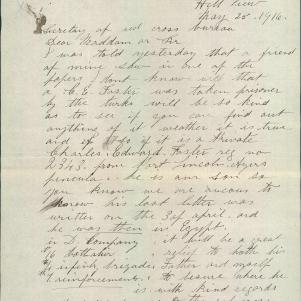 Hill View
May 25. 1916.
Secretary of red cross
bureau
Dear Maddam or Sir
I was told yesterday that a friend
of mine saw in one of the
papers I dont know will that
a C. E. Foster was taken prisoner
by the turks will be so kind
as to see if you can find out
anything of it weather it is true
and if so if it is a Private
Charles Edward Foster reg no
2343. from
penincula. he is our son so
you know we are ancous to
know his last letter was
written on the 3 of april. and
he was then in Egypt.
in D. Company. it will be a great
16 battalion. relief to both his
4 infintry brigade. Father and myself
reinforcement. to desire where he
is with kind regards